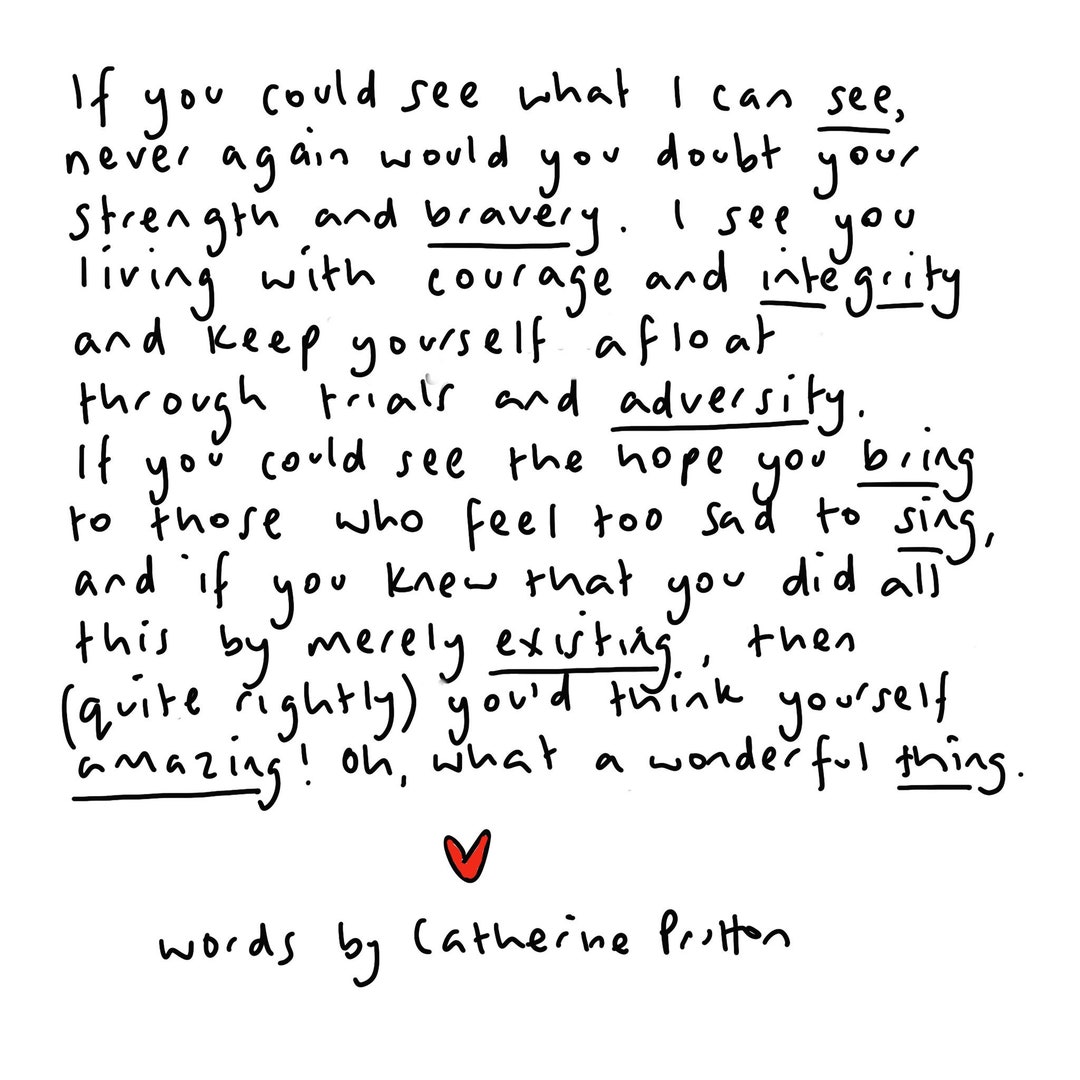 If you could see what I can see,
never again would you doubt your
strength and bravery. I see you
living with courage and integrity
and keep yourself afloat
through trials and adversity.
If you could see the hope you bring
to those who feel too sad to sing,
and if you knew that you did all
this by merely existing, then
(quite rightly) you'd think yourself
amazing! Oh, what a wonderful thing.
words by Catherine